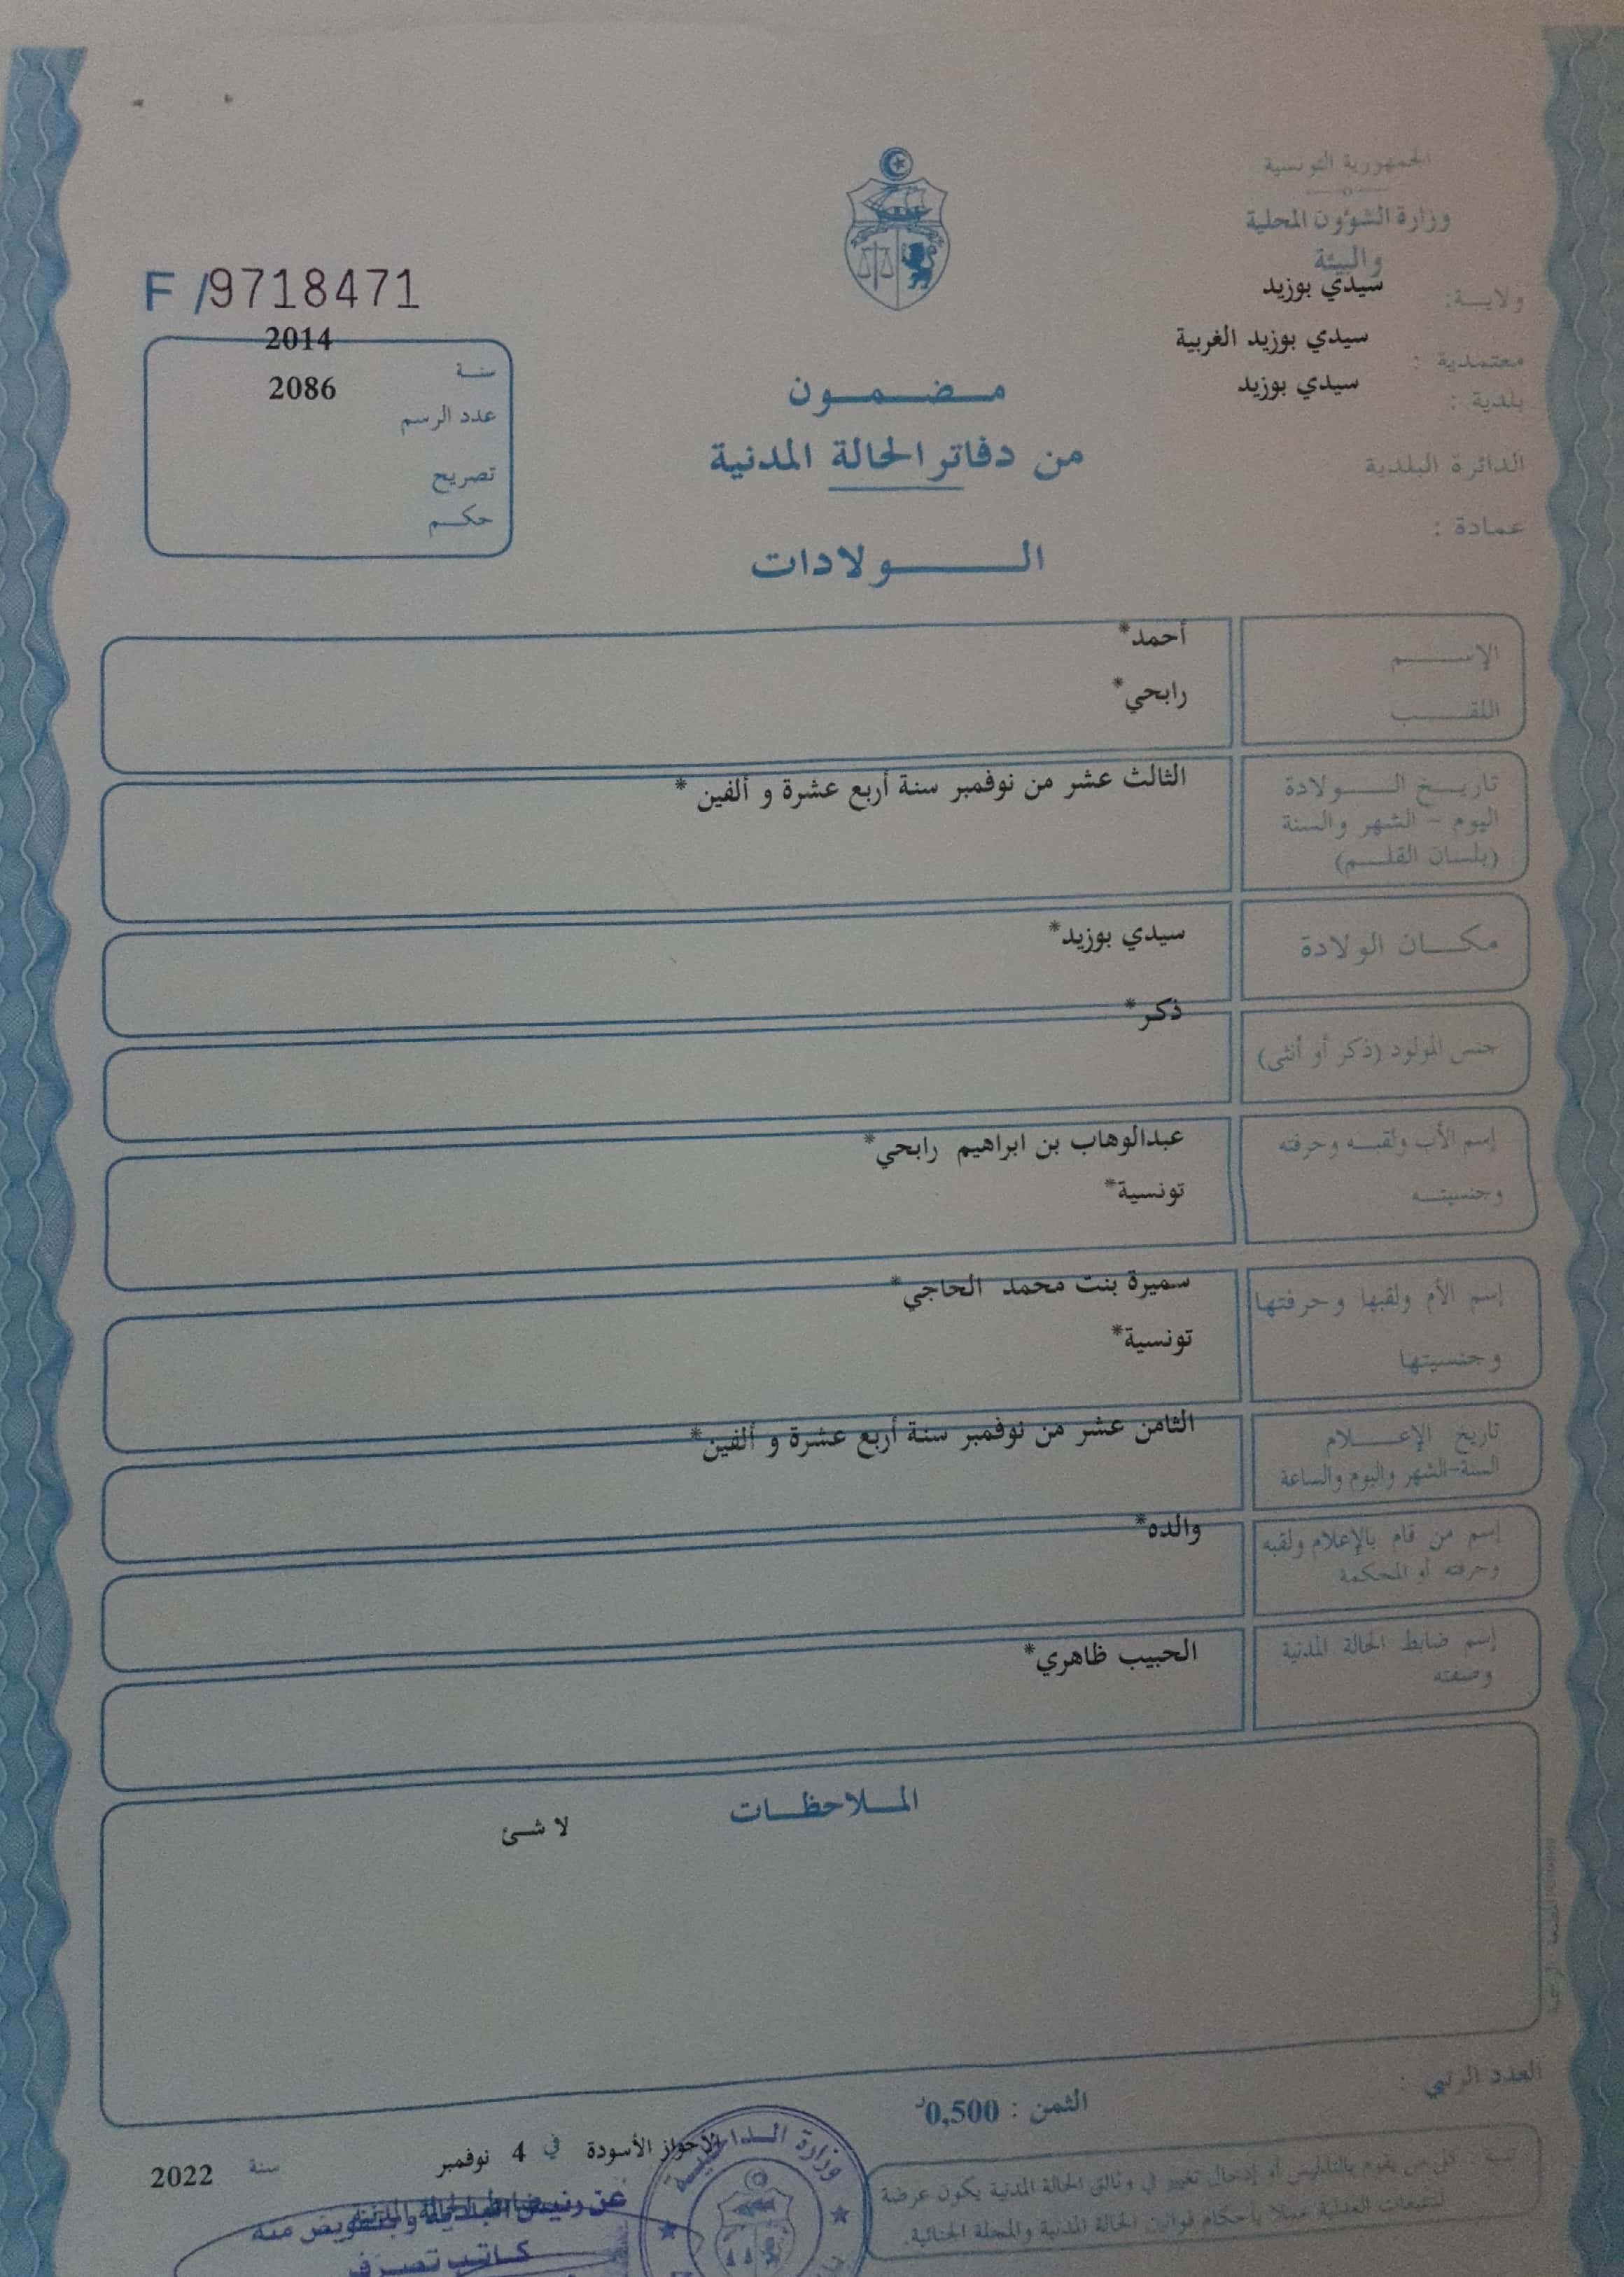 الجمهورية التونسية
وزارة الشؤون المحلية
والبيئة
ولاية: سيدي بوزيد
معتمدية : سيدي بوزيد الغربية
بلدية : سيدي بوزيد
الدائرة البلدية
عمادة :
مضمون
من دفاتر الحالة المدنية
الولادات
F /9718471
سنة 2014
عدد الرسم 2086
تصريح
حكم
الإسم أحمد*
اللقب رابحي*
تاريخ الولادة الثالث عشر من نوفمبر سنة أربع عشرة و ألفين *
اليوم - الشهر والسنة
(بلسان القلم)
مكان الولادة سيدي بوزيد*
جنس المولود (ذكر أو أنثى) ذكر*
إسم الأب ولقبه وحرفته عبدالوهاب بن ابراهيم رابحي*
وجنسيته تونسية*
إسم الأم ولقبها وحرفتها سميرة بنت محمد الحاجي*
وجنسيتها تونسية*
تاريخ الإعلام الثامن عشر من نوفمبر سنة أربع عشرة و ألفين*
السنة-الشهر واليوم والساعة
إسم من قام بالإعلام ولقبه والده*
وحرفته أو المحكمة
إسم ضابط الحالة المدنية الحبيب ظاهري*
وصفته
الملاحظات
لا شئ
العدد الرتبي :
الثمن : 0,500د
تنبيه : كل من يقوم بالتدليس أو إدخال تغيير في وثائق الحالة المدنية يكون عرضة
للتتبعات العدلية عملا بأحكام قوانين الحالة المدنية والمجلة الجنائية.
الأحواز الأسودة في 4 نوفمبر سنة 2022
وزارة الداخلية
عن رئيس البلدية وبتفويض منه
كاتب تصرف